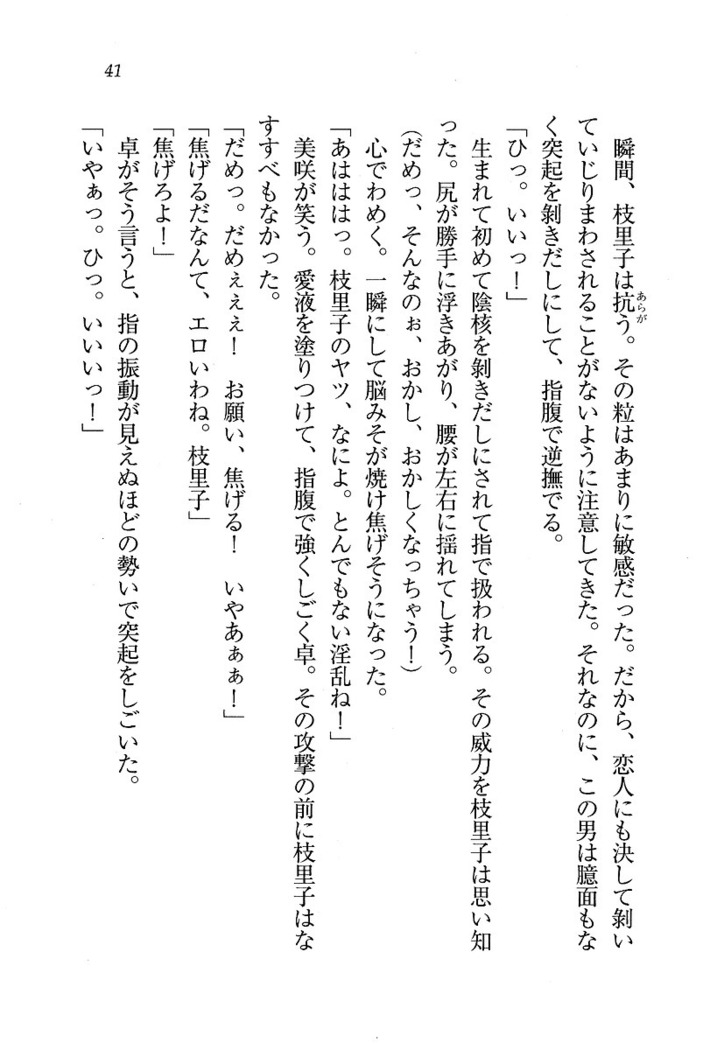 41
瞬間、枝里子は抗う。その粒はあまりに敏感だった。だから、恋人にも決して剝い
あらが
ていじりまわされることがないように注意してきた。それなのに、この男は臆面もな
く突起を剝きだしにして、指腹で逆撫でる。
「ひっ。いいっ！」
生まれて初めて陰核を剝きだしにされて指で扱われる。その威力を枝里子は思い知
った。尻が勝手に浮きあがり、腰が左右に揺れてしまう。
（だめっ、そんなのぉ、おかし、おかしくなっちゃう！）
心でわめく。一瞬にして脳みそが焼け焦げそうになった。
「あはははっ。枝里子のヤツ、なによ。とんでもない淫乱ね！」
美咲が笑う。愛液を塗りつけて、指腹で強くしごく卓。その攻撃の前に枝里子はな
すすべもなかった。
「だめっ。だめぇぇぇ！　お願い、焦げる！　いやあぁぁ！」
「焦げるだなんて、エロいわね。枝里子」
「焦げろよ！」
卓がそう言うと、指の振動が見えぬほどの勢いで突起をしごいた。
「いやぁっ。ひっ。いいいっ！」